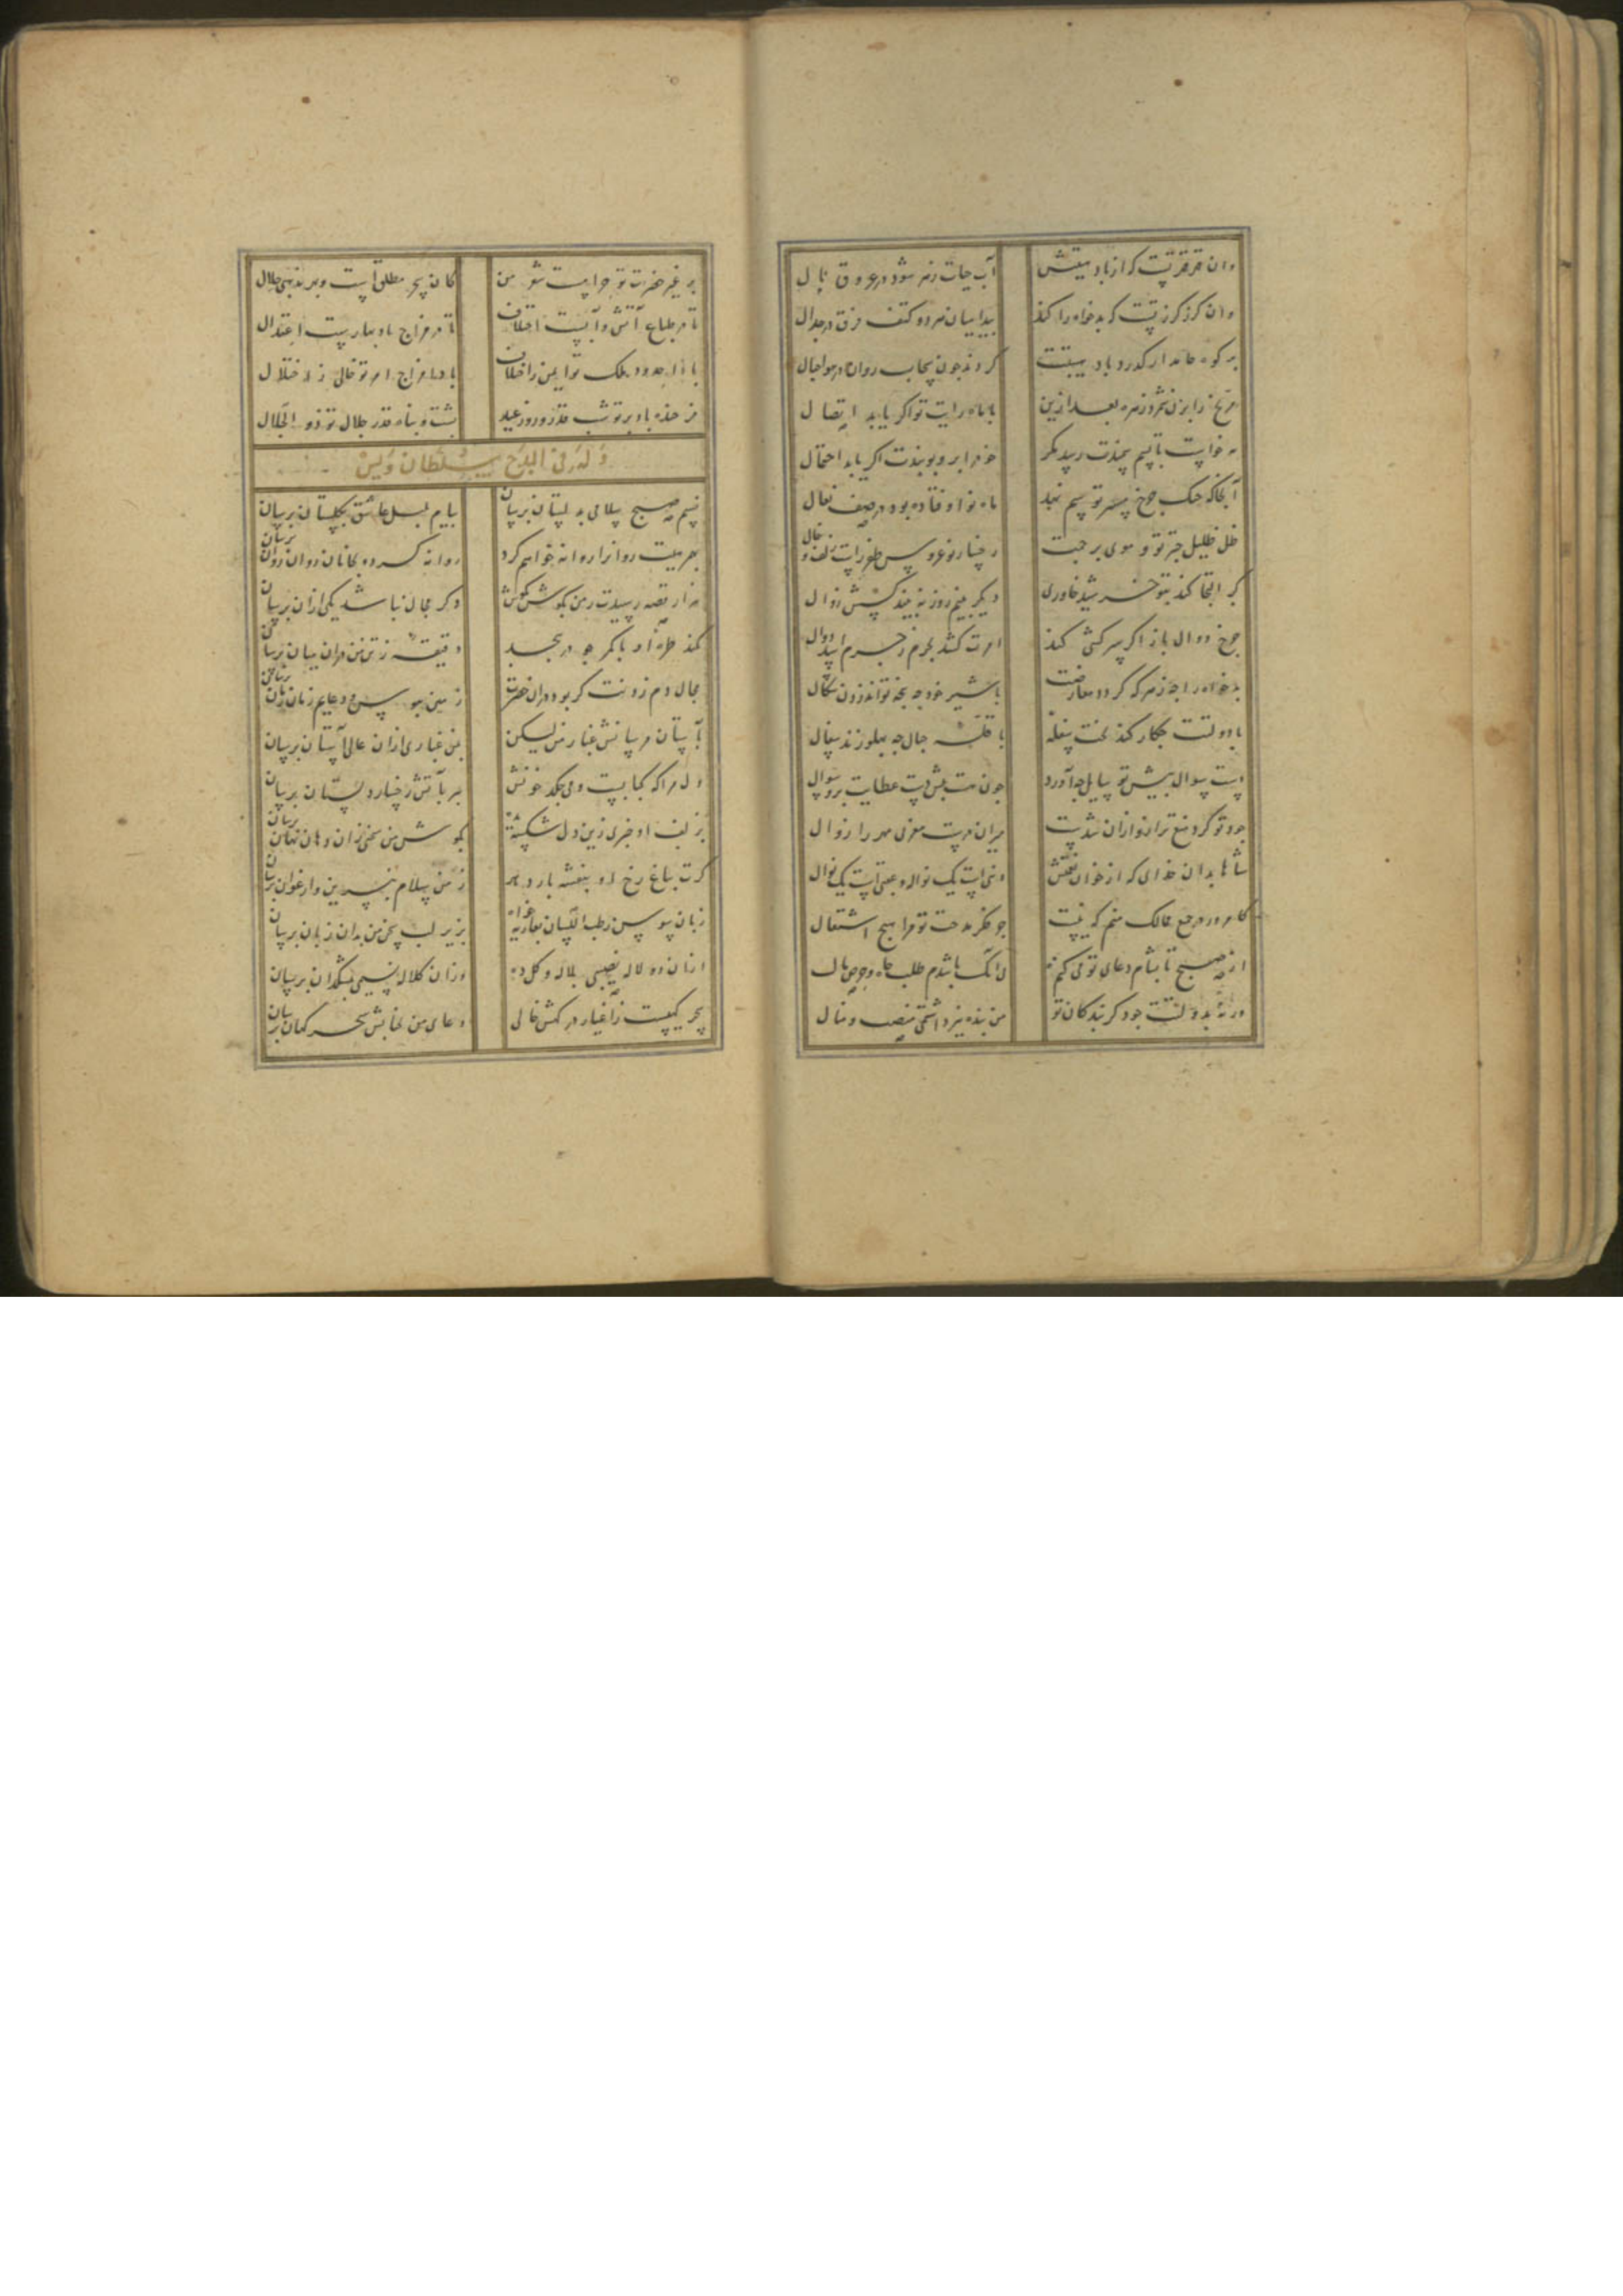 وان قهر قهر تست که از باد هیبتش آب حیات زهر شود در عروق بال
وان کرز کرز تست که بدخواه را کند پیدا میان هر دو کتف فرق در جدال
بر کوه جاندار کذرد باد هیبتت کردند چون سحاب روان در هوا جبال
مریخ را بزن شمرد زهره بعد ازین با ماه رایت تو اکر یابد اتصال
مه خواست تا بسم سمندت رسد مکر خود را برو بوبندت اکر یابد احتمال
آنجا که خنک چرخ بسر تو سم نهد ماه نو اوفتاده بود در صف نعال
ظل ظلیل چتر تو و موی پرچمت رخسار نوعروس ظفر راست زلف و خال
کر التجا کند بتو خورشید خاوری دیکر بنیم روز نبیند کسش زوال
چرخ دوال باز اکر سرکشی کند امرت کشد بجرم ز چرم اسد دوال
بدخواه را چه زهره که کردد معارضت با شیر خود چه پنجه تواند زدن شکال
با دولتت چکار کند بخت سفله با قله جبال چه پهلو زند سفال
دست سوال پیش تو سایل چه آورد چون هست پیش دست عطایت بر سوال
شاها بدان خدای که از خوان نعمتش دنیی است یک نواله و عقبی است یک نوال
کامروز در جمیع ممالک منم که نیست جو فکر مدحت تو مرا هیچ اشتغال
از صبح تا بشام دعای تو می کنم نی آنک باشدم طلب جاه و حرص مال
ورنه بدولتت چو دکر بندکان تو من بنده نیز داشتمی منصب و منال
بر غیر حضرت تو حرامست شعر من کان سحر مطلق است و بهر مذهبی حلال
تا در طباع آتش و آبست اختلاف تا در مزاج باد بهاریست اعتدال
بادا حدود ملک تو ایمن ز اختلاف بادا مزاج امر تو خالی ز اختلال
فرخنده باد بر تو شب قدر و روز عید پشت و پناه قدر جلال تو ذو الجلال
وله فی المدح سلطان ویس
نسیم صبح سلامی به لستان برسان پیام بلبل عاشق بکلستان برسان
بهمرهیت روانرا روانه خواهم کرد روانه کرده بجانان روان روان برسان
هزار قصه رسیدت ز من بکوش بکوش وکر مجال نباشد یکی ازان برسان
کمند طره او با کمر چو در پیچد دقیقه ز تن من دران میان برسان
مجال دم زدنت کر بود دران حضرت زمین ببوس و دعایم زمان زمان برسان
بآستان مرسانش غبار من لیکن بمن غباری ازان عالی آستان برسان
دل مرا که کبابست و می چکد خونش ببر بآتش رخسار دلستان برسان
بزلف او خبری زین دل شکسته بکوش من سخنی زان دهان نهان برسان
کرت بباغ رخ او بنفشه بار دهد ز من سلام بنسرین و ارغوان برسان
زبان سوسن رطب اللسان بعاریه خواه بزیر لب سخن من بدان زبان برسان
ازان دو لاله نصیبی بلاله و کل ده وزان کلاله نسیمی بمشکدان برسان
سحر کهیست ز اغیار در کهش خالی دعای من بجنابش سحر کهان برسان